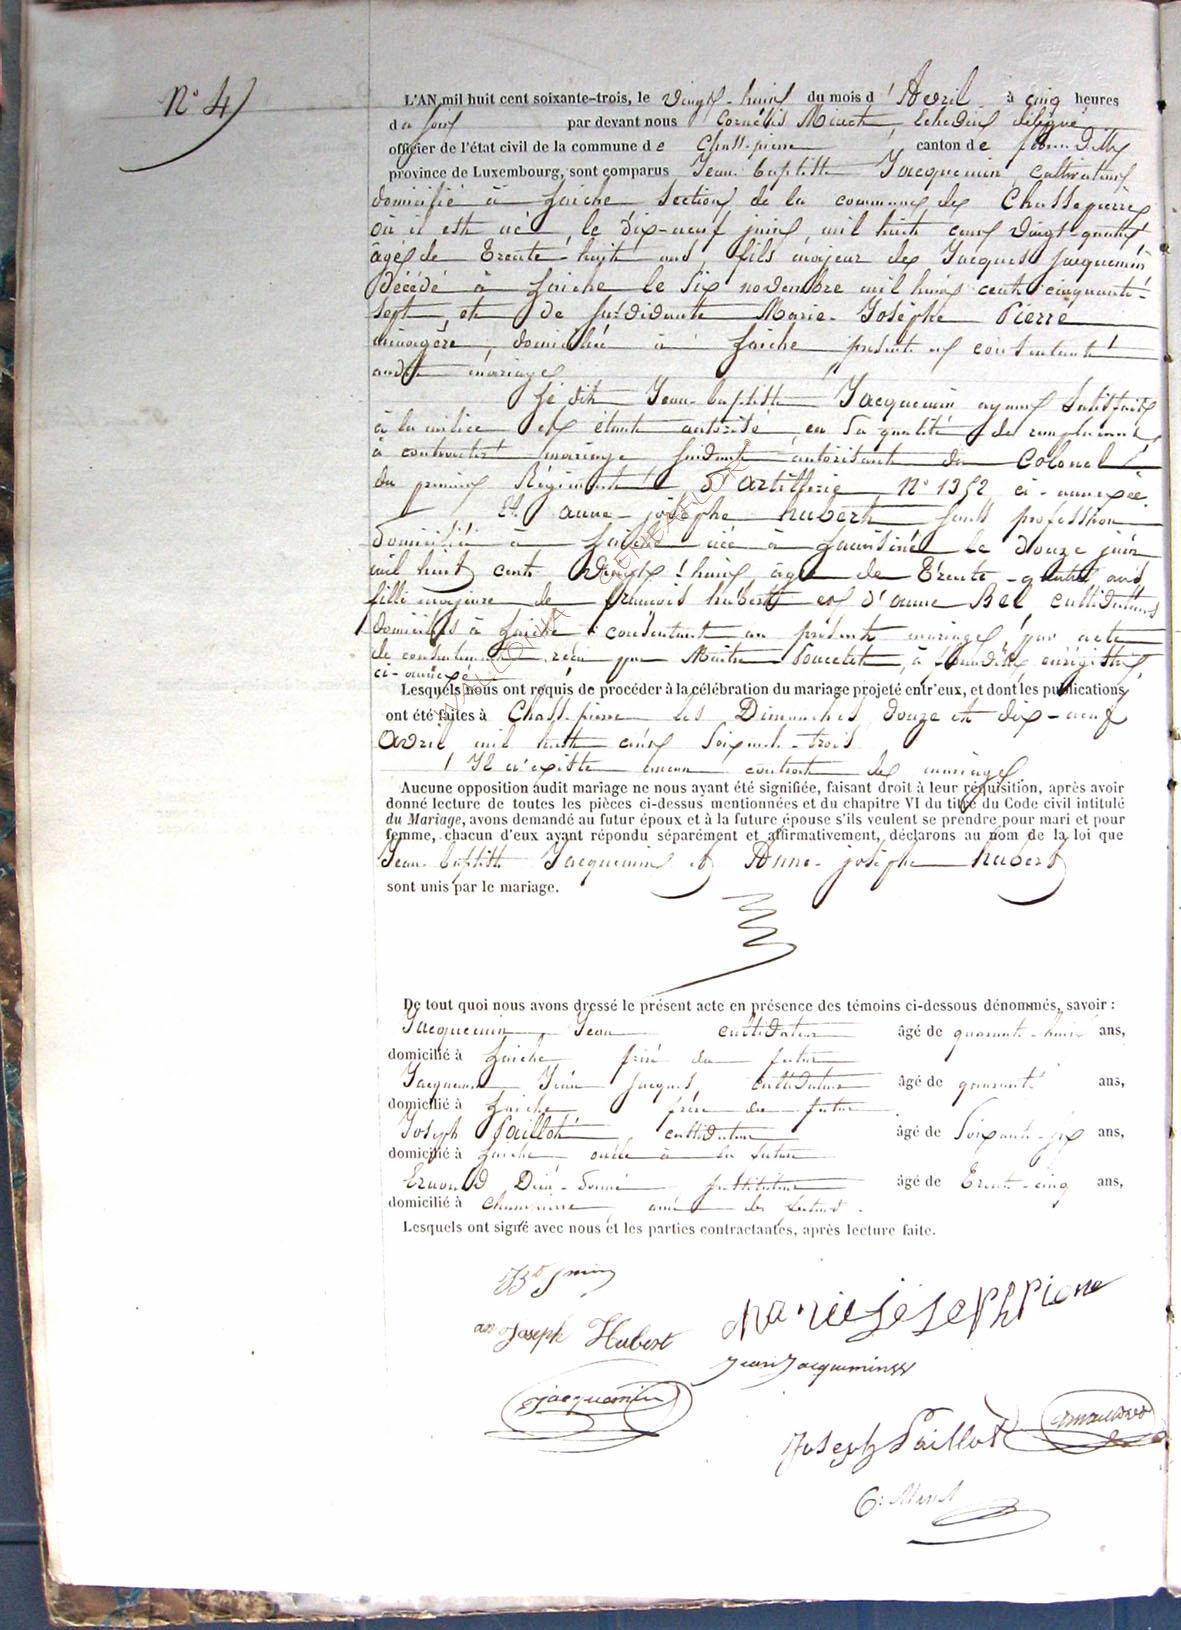 N° 4
L'AN mil huit cent soixante-trois, le vingt-huit du mois d'Avril à cinq heures
du soir par devant nous Cornélis Échevin délégué
officier de l'état civil de la commune de Chassepierre canton de
province de Luxembourg, sont comparus Jean-baptiste Jacquemin cultivateur
domicilié à laiche section de la commune de Chassepierre
où il est né le dix-neuf juin mil huit cent vingt-quatre
âgé de trente-huit ans, fils majeur de Jacques Jacquemin
décédé à laiche le six novembre mil huit cent cinquante-
sept et de survivante Marie-Josèphe Pierre
ménagère, domiciliée à laiche présente et consentante
audit mariage
Le dit Jean-baptiste Jacquemin ayant satisfait
à la milice et étant autorisé en sa qualité de remplaçant
à contracter mariage suivant autorisation du Colonel
du premier Régiment d'artillerie N° 1352 ci-annexée
Et anne-josèphe hubert sans profession
domiciliée à laiche née à le douze juin
mil huit cent vingt-huit âgée de trente-quatre ans
fille majeure de françois hubert et d'anne Bel cultivateurs
domiciliés à laiche consentant au présent mariage, par acte
de consentement reçu par Maître Poncelet, à enrégistré
ci-annexé
Lesquels nous ont requis de procéder à la célébration du mariage projeté entr'eux, et dont les publications
ont été faites à Chassepierre les Dimanches douze et dix-neuf
avril mil huit cent soixante-trois
Il n'existe aucun contrat de mariage.
Aucune opposition audit mariage ne nous ayant été signifiée, faisant droit à leur réquisition, après avoir
donné lecture de toutes les pièces ci-dessus mentionnées et du chapitre VI du titre du Code civil intitulé
du Mariage, avons demandé au futur époux et à la future épouse s'ils veulent se prendre pour mari et pour
femme, chacun d'eux ayant répondu séparément et affirmativement, déclarons au nom de la loi que
Jean-baptiste Jacquemin et Anne-josèphe hubert
sont unis par le mariage.
De tout quoi nous avons dressé le présent acte en présence des témoins ci-dessous dénommés, savoir :
Jacquemin, Jean cultivateur âgé de quarante-huit ans,
domicilié à laiche frère du futur
Jacquemin Jean Jacques cultivateur âgé de quarante ans,
domicilié à laiche frère du futur
Joseph Paillot cultivateur âgé de soixante-six ans,
domicilié à laiche oncle à la future
Dieu-donné instituteur âgé de trente-cinq ans,
domicilié à Chassepierre ami des futurs.
Lesquels ont signé avec nous et les parties contractantes, après lecture faite.
an Joseph Hubert
Marie Josephe Pierre
Jean Jacquemin
Jacquemin
Joseph Paillot
WALLONIA GENEANLOR